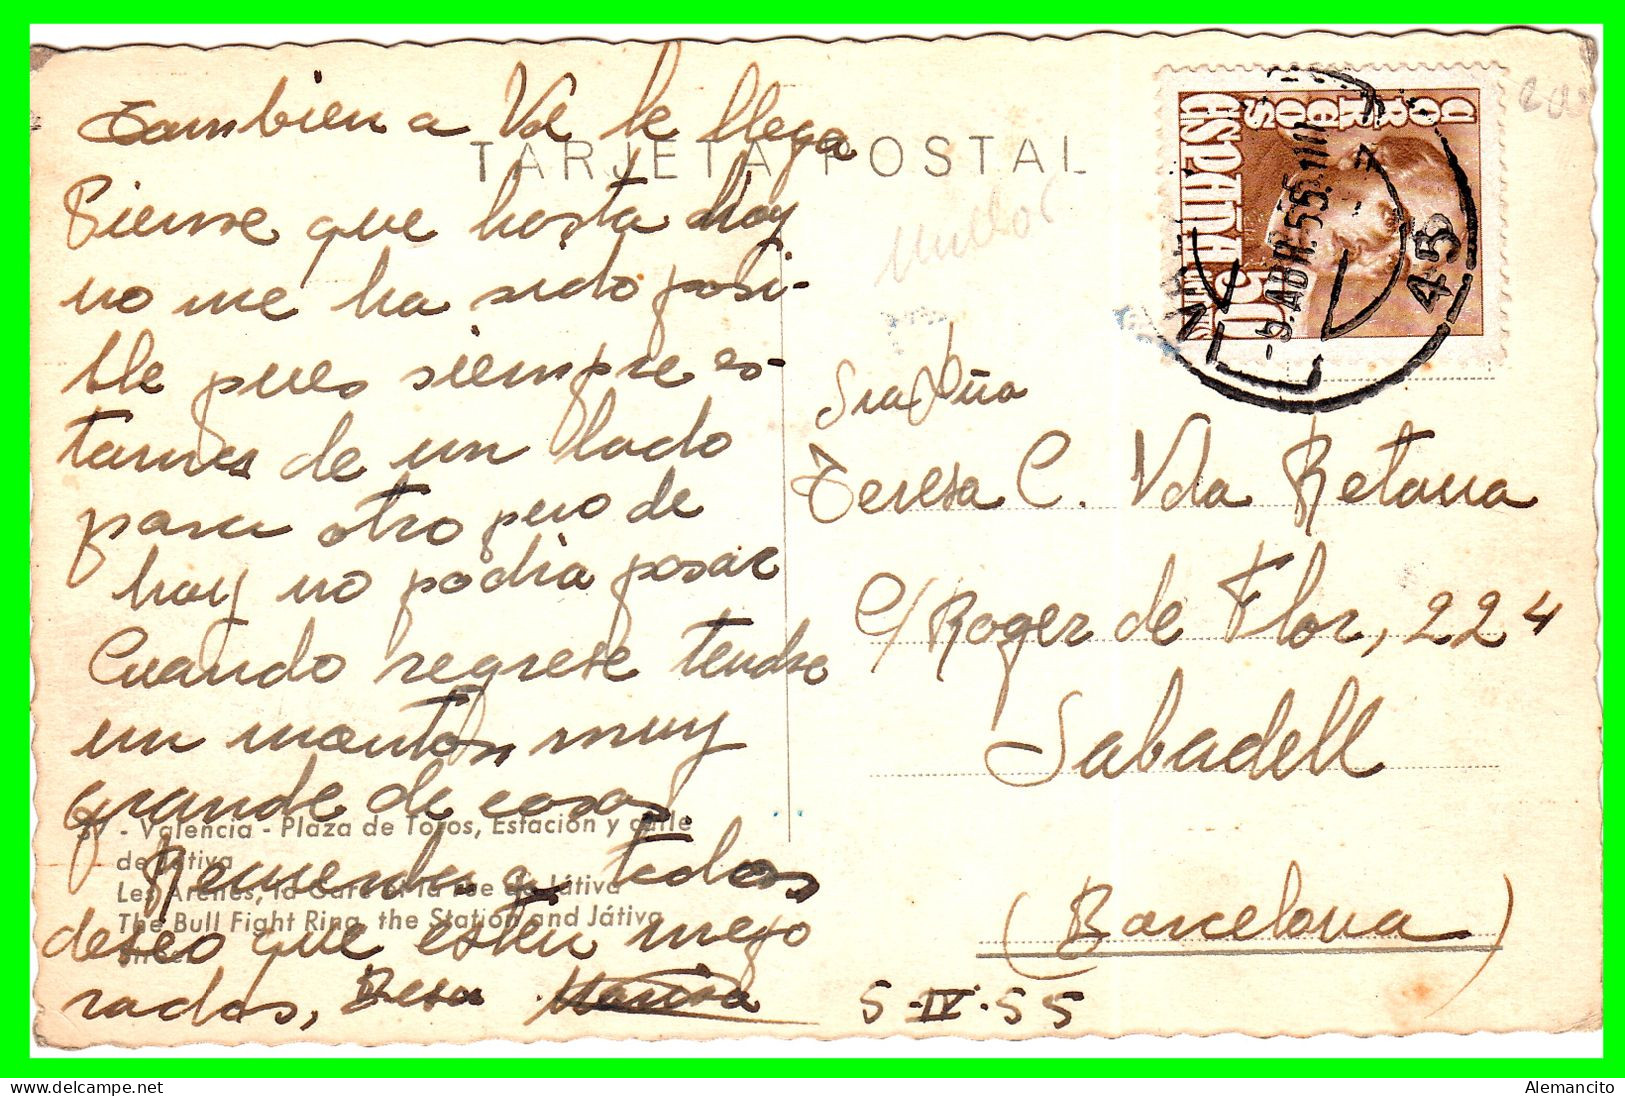 Tambien a Vd le llega
TARJETA POSTAL
Piense que hasta hoy
no me ha sido posi-
ble pues siempre es-
tamos de un lado
para otro pero de
hoy no podia pasar
Cuando regrese tendre
un monton muy
grande de cosas
37 - Valencia - Plaza de Toros, Estación y calle
de Játiva
Recuerdos a todos
Les Arènes, la Gare et la rue de Játiva
The Bull Fight Ring, the Station and Játiva
deseo que esten mejo
Street
rados, Besa Marisa
5-IV-55
Sra Dña
Teresa C. Vda Retana
C/ Roger de Flor, 224
Sabadell
(Barcelona)
ESPAÑA
CORREOS
50
-9.ABR.55
45
Alemancito